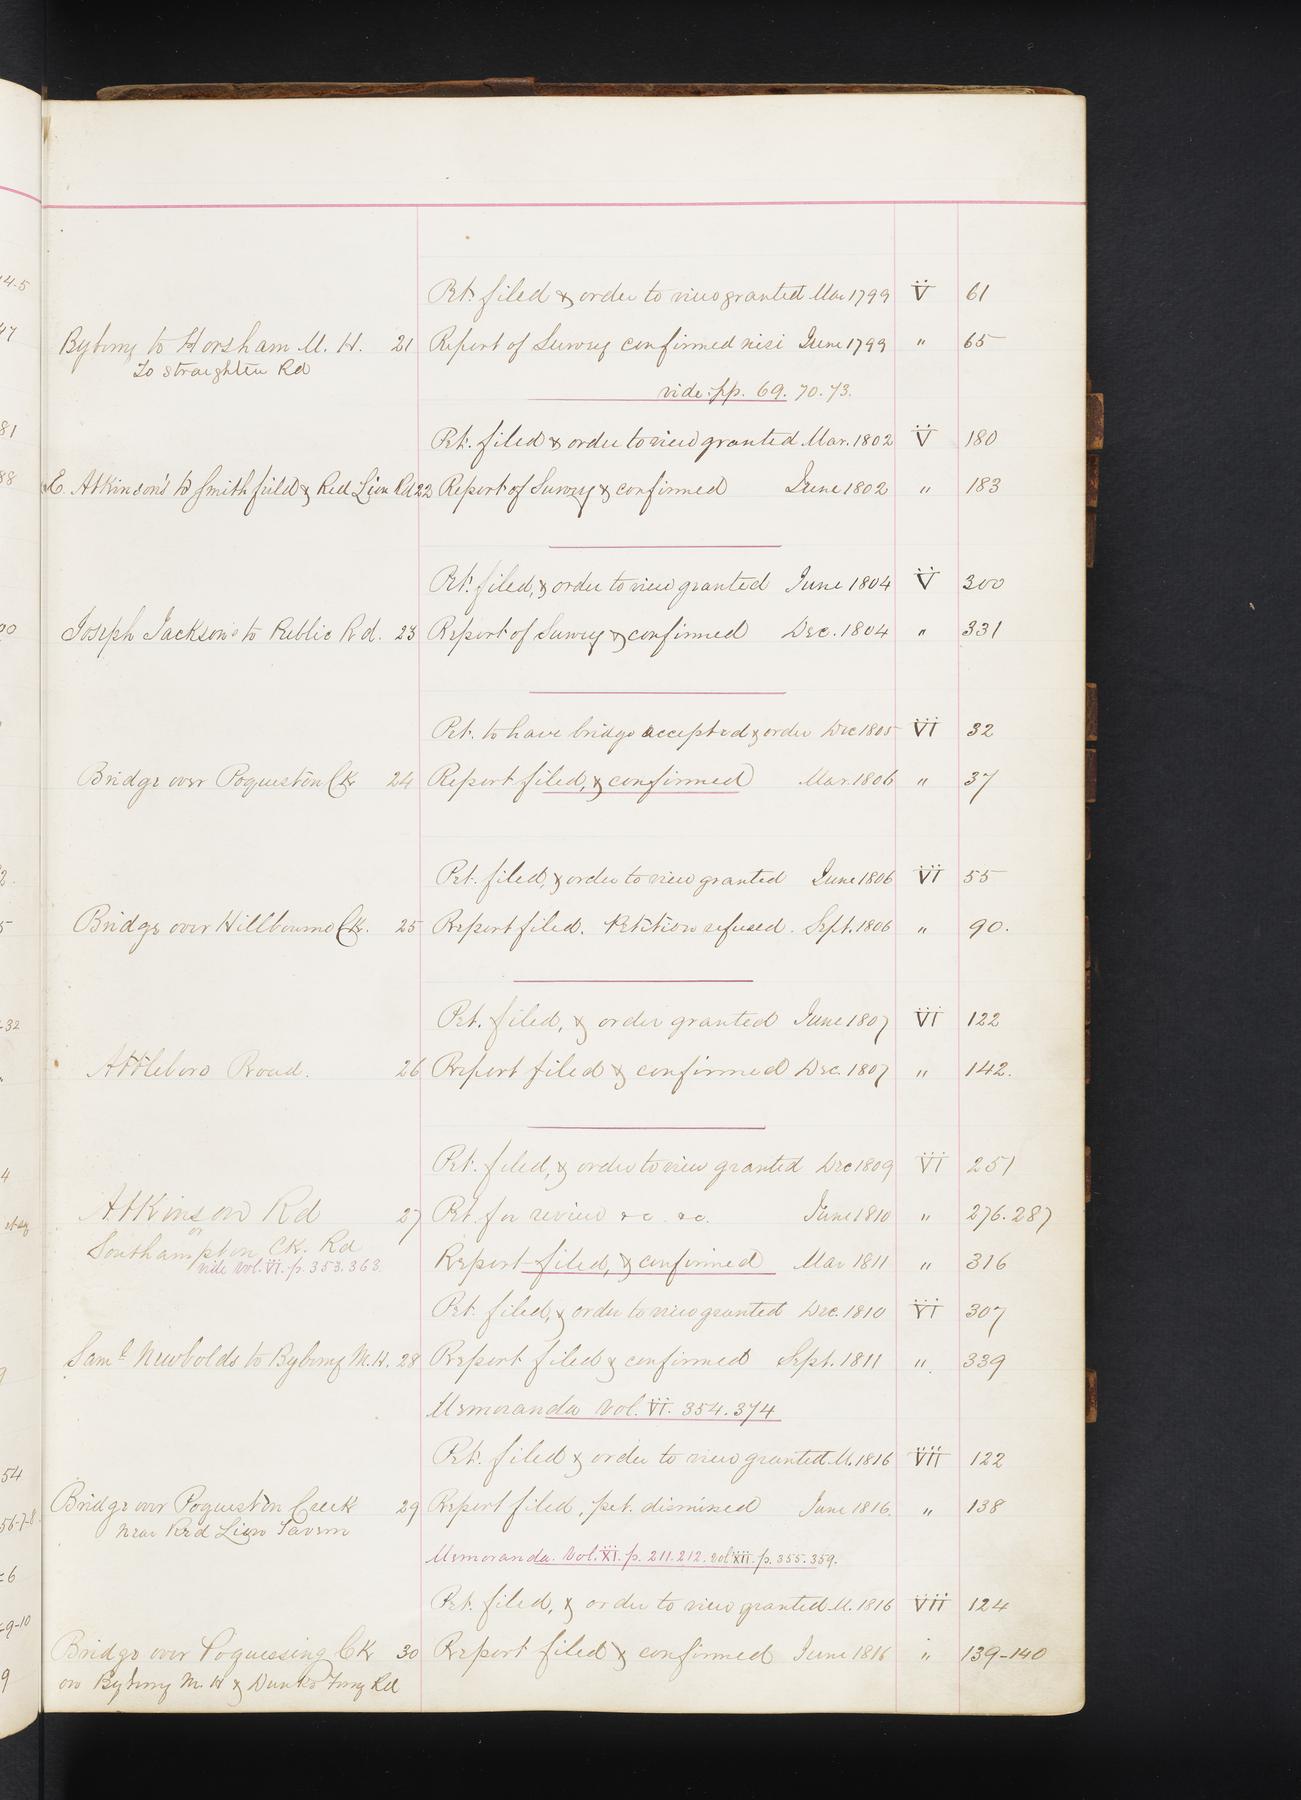 Pet. filed & order to view granted Mar 1799 V 61
Byberry to Horsham M. H. 21 Report of Survey confirmed nisi June 1799 " 65
To straighten Rd
vide: pp. 69. 70. 73.
Pet. filed & order to view granted Mar. 1802 V 180
E. Atkinson's to Smithfield & Red Lion Rd 22 Report of Survey & confirmed June 1802 " 183
Pet. filed, & order to view granted June 1804 V 300
Joseph Jackson's to Public Rd. 23 Report of Survey & confirmed Dec. 1804 " 331
Pet. to have bridge accepted & order Dec 1805 VI 32
Bridge over Poqueston Ck 24 Report filed, & confirmed Mar. 1806 " 37
Pet. filed, & order to view granted June 1806 VI 55
Bridge over Hillbourne Ck. 25 Report filed. Petition refused. Sept. 1806 " 90.
Pet. filed, & order granted June 1807 VI 122
Attleboro Road. 26 Report filed & confirmed Dec. 1807 " 142.
Pet. filed, & order to view granted Dec 1809 VI 251
Atkinson Rd 27 Pet. for review &c. &c. June 1810 " 276. 287
or
Southampton Ck. Rd Report filed, & confirmed Mar 1811 " 316
vide Vol. VI. p. 353. 363.
Pet. filed, & order to view granted Dec. 1810 VI 307
Saml Newbolds to Byberry M. H. 28 Report filed & confirmed Sept. 1811 " 339
Memoranda Vol. VI. 354. 374
Pet. filed & order to view granted M. 1816 VII 122
Bridge over Poqueston Creek 29 Report filed, pet. dismissed June 1816. " 138
near Red Lion Tavern
Memoranda. Vol. XI. p. 211. 212. vol XII. p. 355. 359.
Pet. filed, & order to view granted M. 1816 VII 124
Bridge over Poquessing Ck 30 Report filed & confirmed June 1816 " 139-140
on Byberry M. H & Dunks Ferry Rd